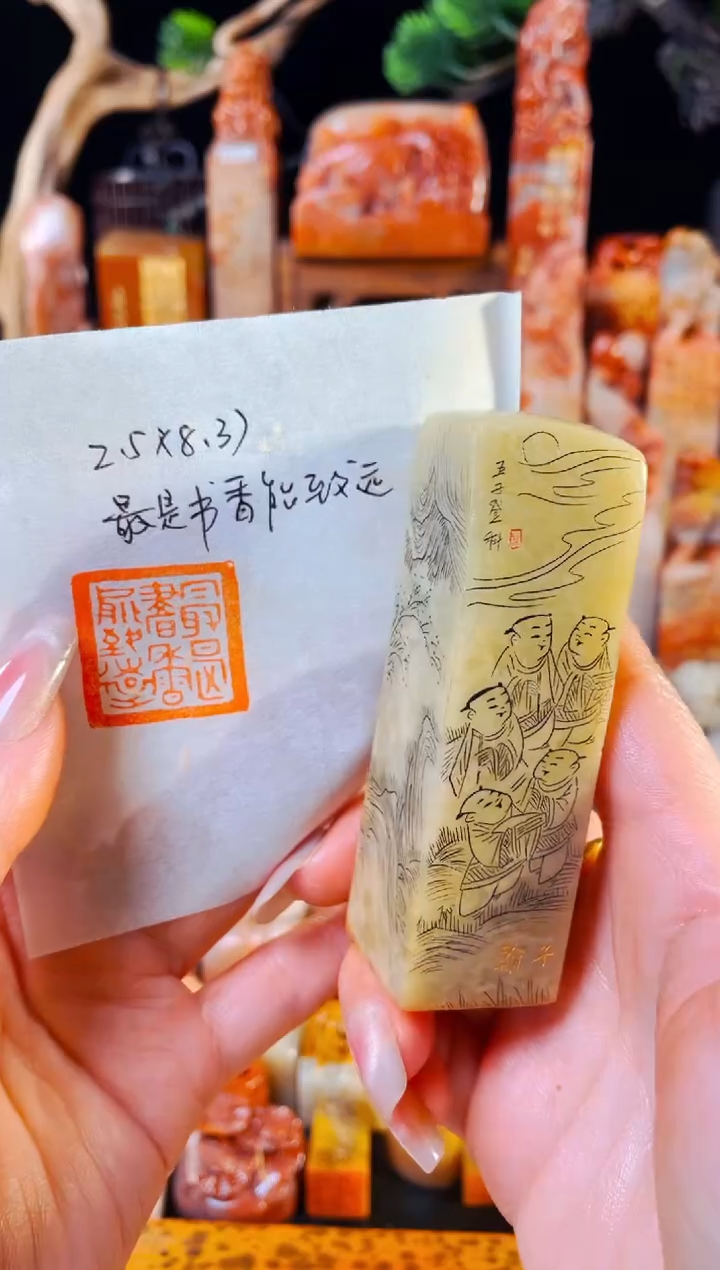 2.5×8.3)
最是书香能致远
最是
書香
能致遠
五子登科